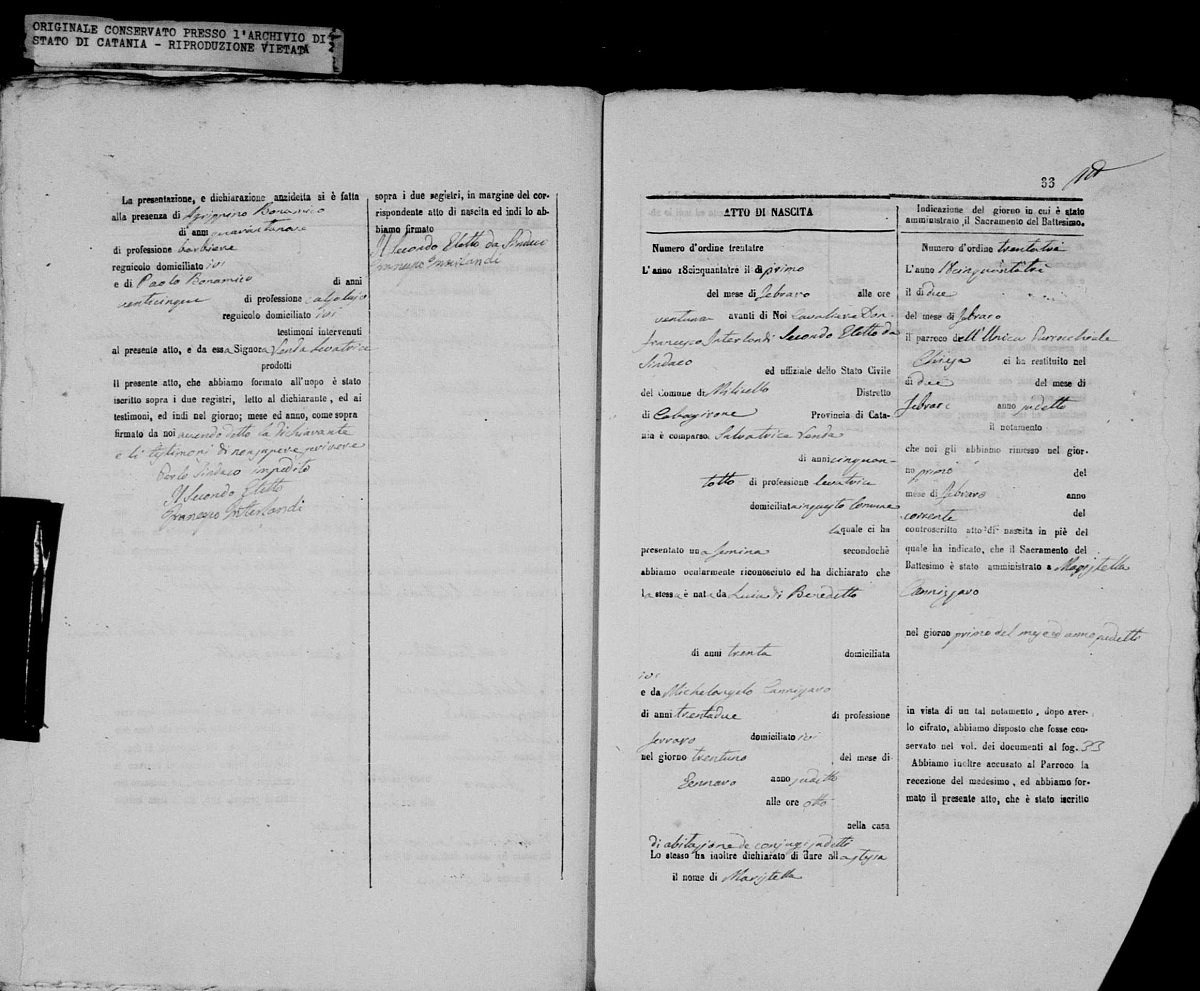 ORIGINALE CONSERVATO PRESSO l'ARCHIVIO DI
STATO DI CATANIA - RIPRODUZIONE VIETATA
La presentazione, e dichiarazione anzidetta si è fatta
alla presenza di Agrippino Bonamico
di anni
di professione barbiere
regnicolo domiciliato ivi
e di Paolo Bonamico di anni
venticinque di professione calzolajo
regnicolo domiciliato ivi
testimoni intervenuti
al presente atto, e da essa Signora Venda levatrice
prodotti
Il presente atto, che abbiamo formato all'uopo è stato
iscritto sopra i due registri, letto al dichiarante, ed ai
testimoni, ed indi nel giorno; mese ed anno, come sopra
firmato da noi avendo detto la dichiarante
e li testimoni di non sapere scrivere
Per lo Sindaco impedito
Il Secondo Eletto
Francesco Interlandi
sopra i due registri, in margine del cor-
rispondente atto di nascita ed indi lo ab-
biamo firmato
Il Secondo Eletto da Sindaco
Francesco Interlandi
33
ATTO DI NASCITA
Numero d'ordine trentatre
L'anno 18cinquantatre il dì primo
del mese di Febraro alle ore
ventuna avanti di Noi Cavaliere Don
Francesco Interlandi Secondo Eletto da
Sindaco
ed uffiziale dello Stato Civile
del Comune di Militello Distretto
di Caltagirone Provincia di Cata-
nia è comparsa Salvatrice Venda
di anni cinquan-
totto di professione levatrice
domiciliata in questo Comune
la quale ci ha
presentato una femina secondochè
abbiamo ocularmente riconosciuto ed ha dichiarato che
la stessa è nata da Lucia di Benedetto
di anni trenta domiciliata
ivi
e da Michelangelo Cannizzaro
di anni trentadue di professione
ferraro domiciliato ivi
nel giorno trentuno del mese di
Gennaro anno sudetto
alle ore otto
nella casa
di abitazione de conjugi sudetti
Lo stesso ha inoltre dichiarato di dare alla stessa
il nome di Maristella
Indicazione del giorno in cui è stato
amministrato il Sacramento del Battesimo.
Numero d'ordine trentatre
L'anno 18cinquantatre
il dì due
del mese di Febraro
il parroco dell'Unica Parrocchiale
Chiesa ci ha restituito nel
dì due del mese di
Febraro anno sudetto
il notamento
che noi gli abbiamo rimesso nel gior-
no primo del
mese di Febraro anno
corrente del
controscritto atto di nascita in piè del
quale ha indicato, che il Sacramento del
Battesimo è stato amministrato a Maristella
Cannizzaro
nel giorno primo del mese ed anno sudetti
in vista di un tal notamento, dopo aver-
lo cifrato, abbiamo disposto che fosse con-
servato nel vol. dei documenti al fog. 33
Abbiamo inoltre accusato al Parroco la
recezione del medesimo, ed abbiamo for-
mato il presente atto, che è stato iscritto